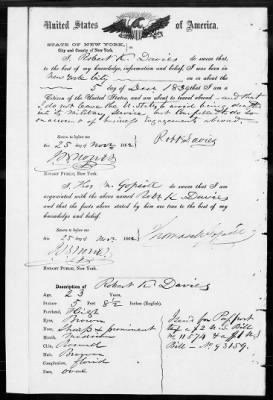 United States of America.
STATE OF NEW YORK,
City and County of New York.
I, Robert K. Davies do swear that,
to the best of my knowledge, information and belief I was born in
New York City on or about the
5 day of Dec 1839 that I am a
Citizen of the United States and am about to travel abroad - and that
I do not leave the U. States to avoid being drafted
into its Military Service but
business engagements abroad.
Sworn to before me
this 25 day of Nov 1862
Robt Davies
NOTARY PUBLIC, New York.
I, Thos M. do swear that I am
acquainted with the above named Robt K Davies
and that the facts above stated by him are true to the best of my
knowledge and belief.
Sworn to before me
this 25 day of Nov 1862
NOTARY PUBLIC, New York.
Description of Robert K. Davies
Age, 23 Years.
Stature, 5 Feet 8½ Inches (English).
Forehead, High
Eyes, Brown
Nose, Sharp & prominent
Mouth, Medium
Chin, Round
Hair, Brown
Complexion, florid
Face, oval
Send for Passport